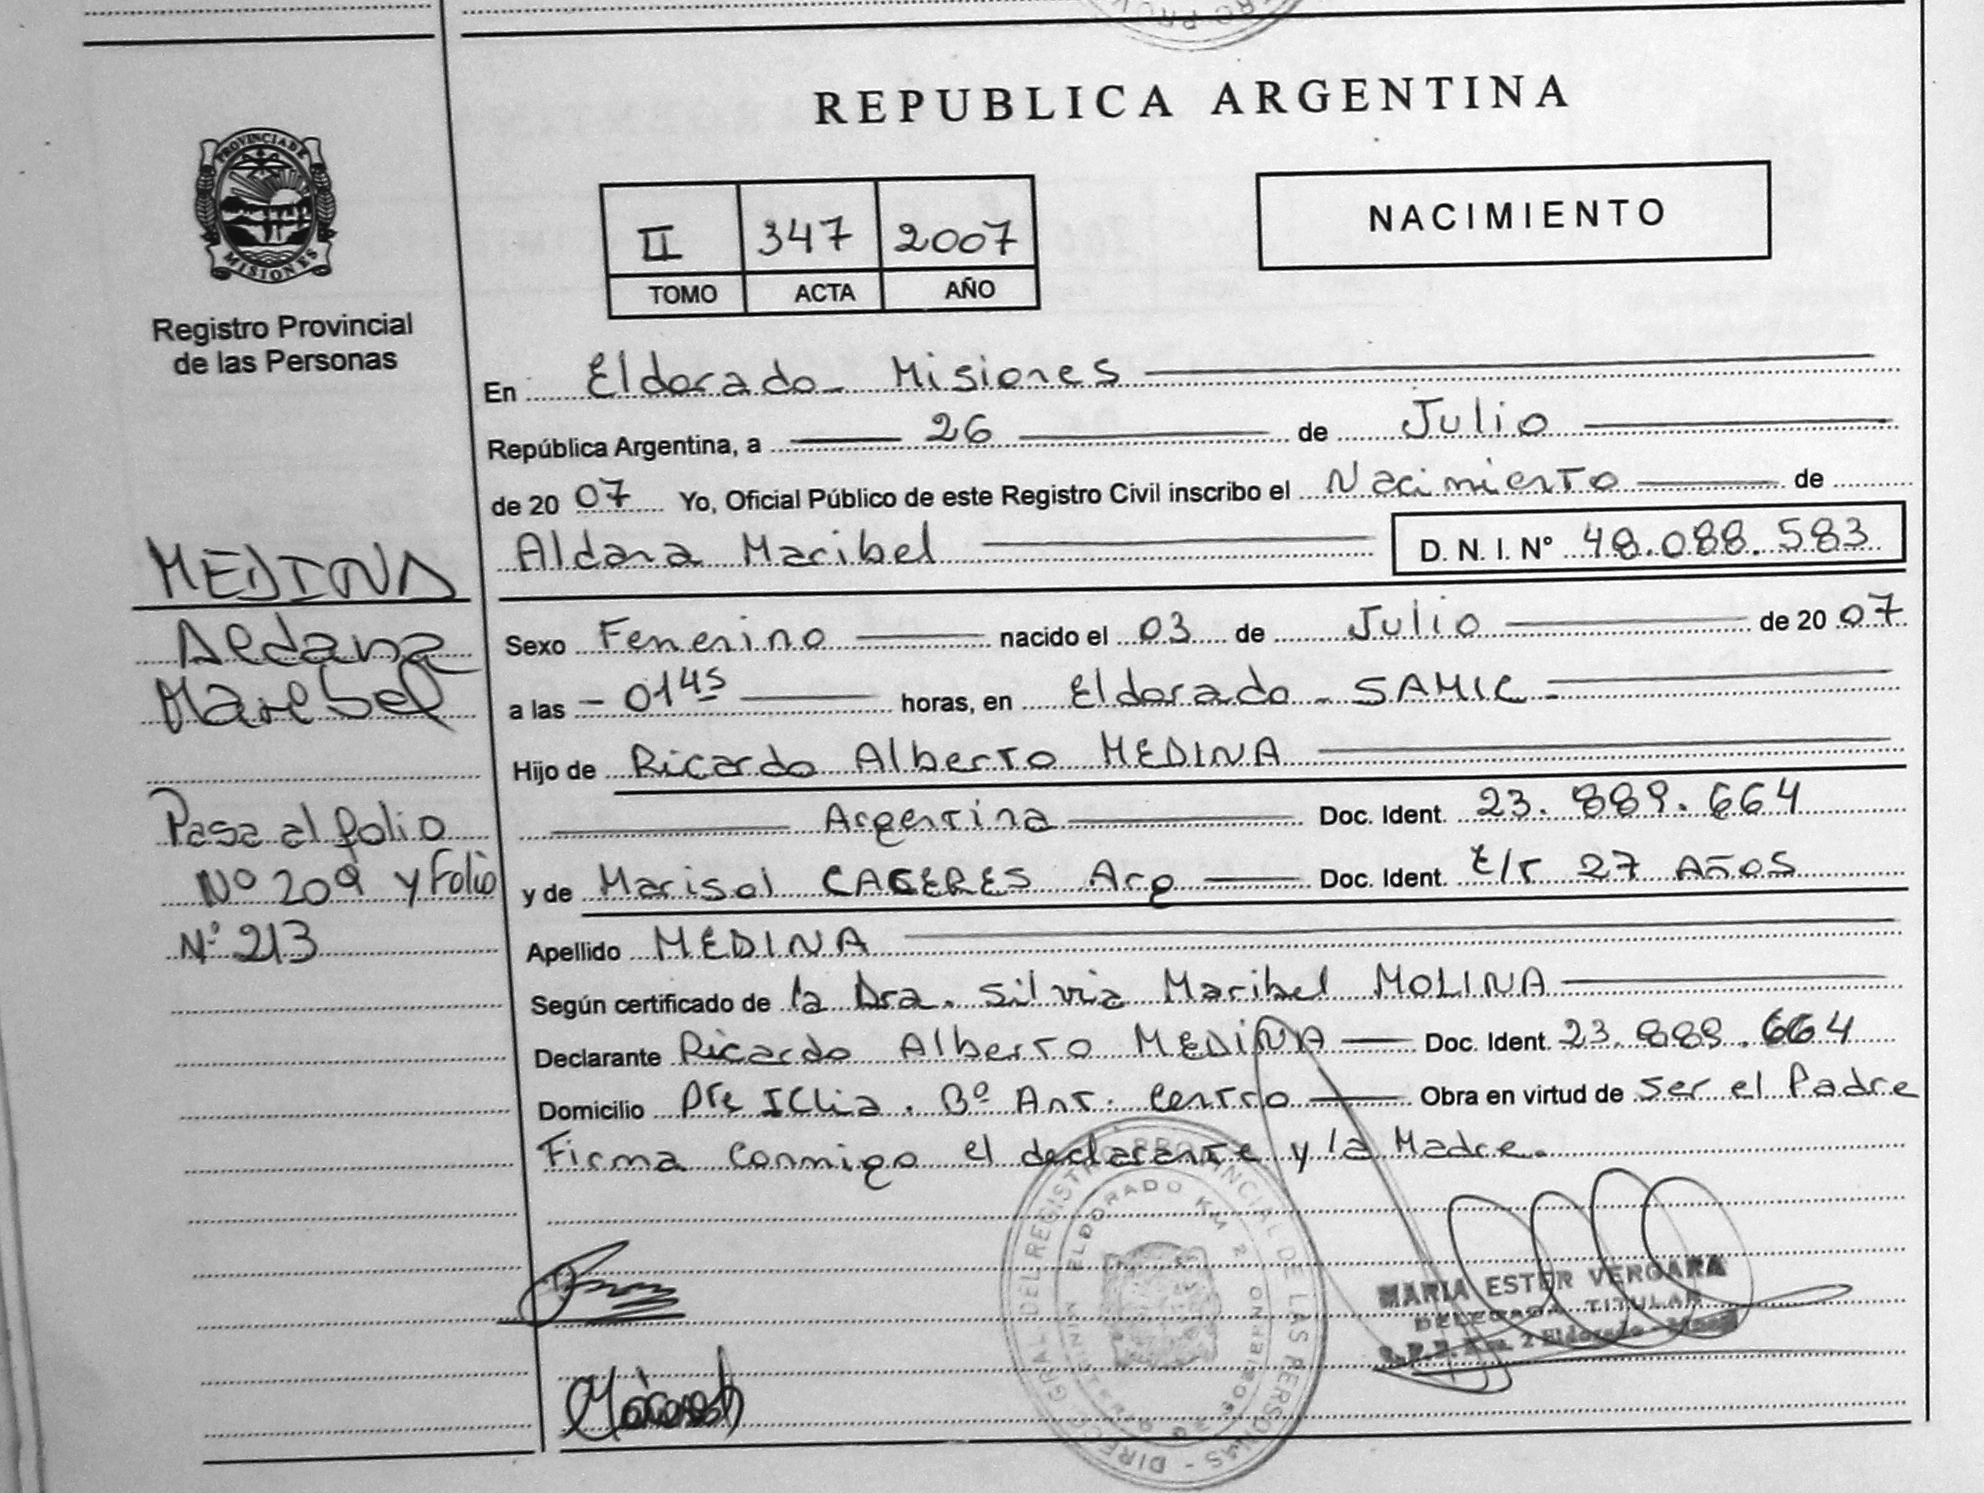 REPUBLICA ARGENTINA
PROVINCIA DE
MISIONES
Registro Provincial
de las Personas
II 347 2007
TOMO ACTA AÑO
NACIMIENTO
En Eldorado - Misiones
República Argentina, a 26 de Julio
de 20 07 Yo, Oficial Público de este Registro Civil inscribo el Nacimiento de
Aldana Maribel D. N. I. N° 48.088.583
MEDINA
Aldana
Maribel
Pasa al folio
Nº 209 y Folio
Nº 213
Sexo Femenino nacido el 03 de Julio de 20 07
a las - 01 45 horas, en Eldorado - SAMIC -
Hijo de Ricardo Alberto MEDINA
Argentina Doc. Ident. 23.889.664
y de Marisol CACERES Arg Doc. Ident. E/T 27 Años
Apellido MEDINA
Según certificado de la Dra. Silvia Maribel MOLINA
Declarante Ricardo Alberto MEDINA Doc. Ident. 23.889.664
Domicilio Pte ICllia. Bº Ant. Centro Obra en virtud de ser el Padre
Firma conmigo el declarante y la Madre.
DIREC. GRAL DEL REGISTRO PROVINCIAL DE LAS PERSONAS -
MINISTERIO DE GOBIERNO
ELDORADO KM 2
MARIA ESTER VERGARA
DELEGADA TITULAR
R.P.P. Km. 2 Eldorado - Mnes